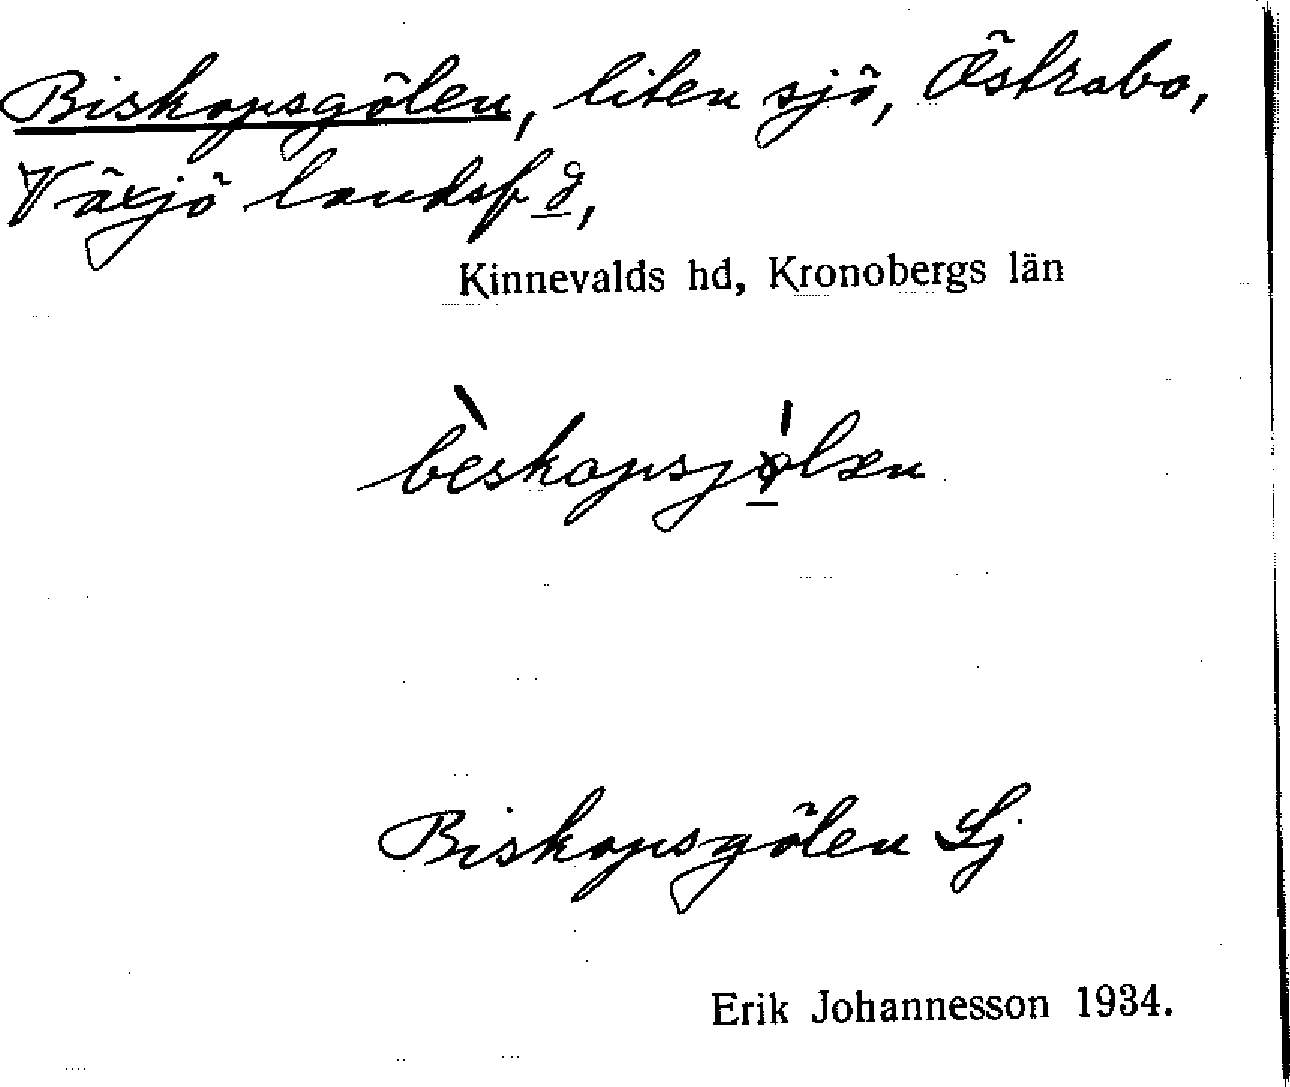 Biskopsgölen, liten sjö, Östrabo,
Växjö landsf d,
Kinnevalds hd, Kronobergs län
Biskopsgölen Sj
Erik Johannesson 1934.